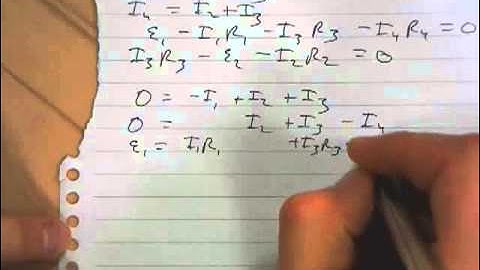 I₄ = I₂ + I₃
ε₁ - I₁R₁ - I₃R₃ - I₄R₄ = 0
I₃R₃ - ε₂ - I₂R₂ = 0
0 = -I₁ + I₂ + I₃
0 = I₂ + I₃ - I₄
ε₁ = I₁R₁ + I₃R₃